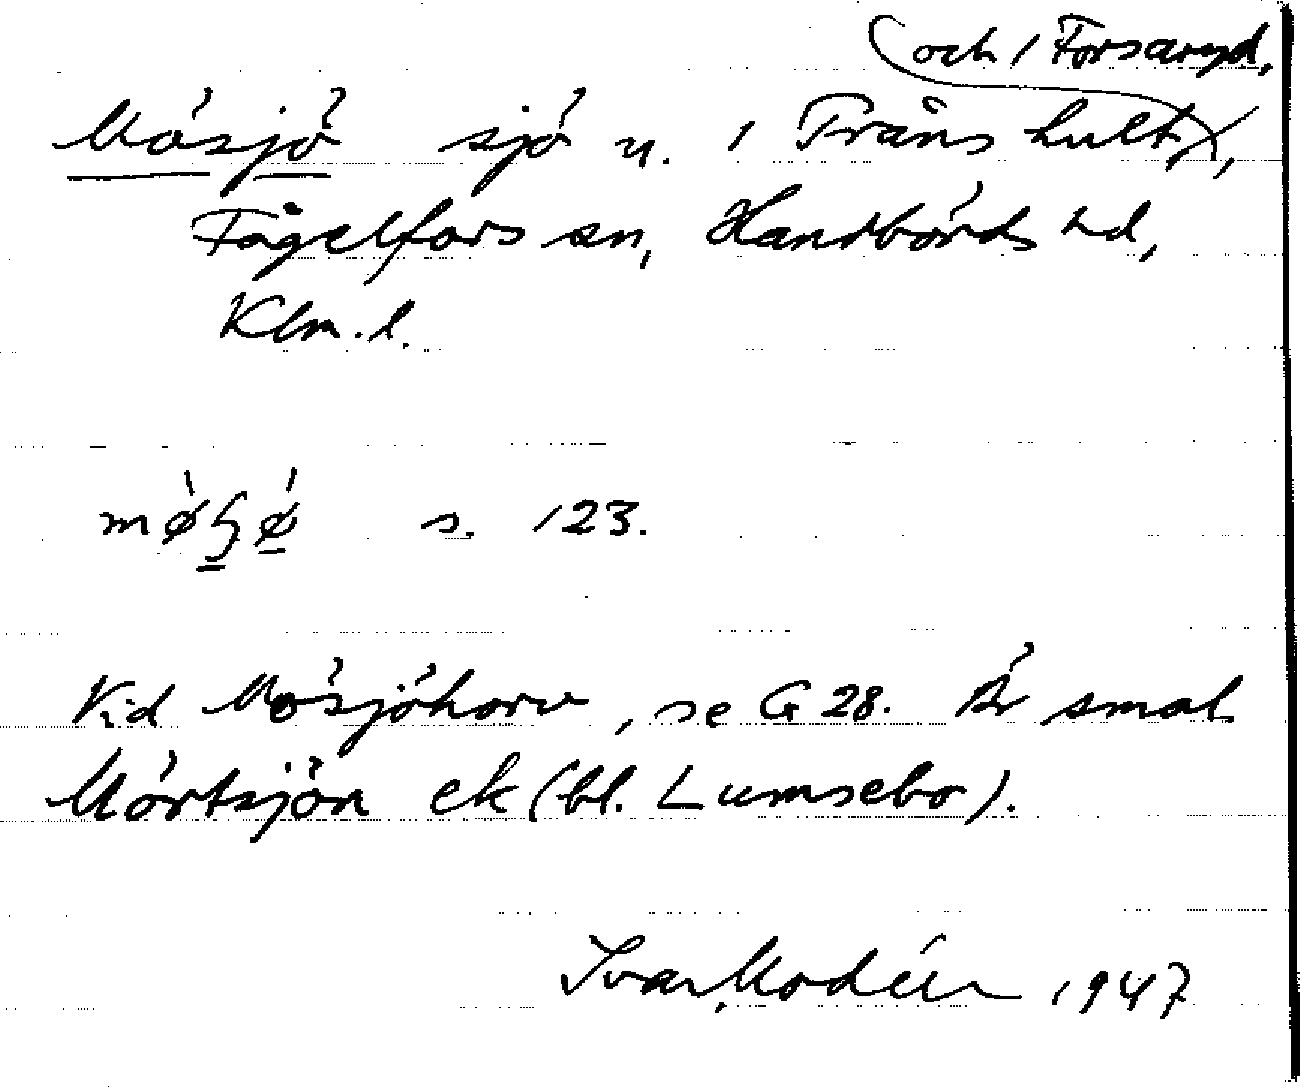 och i Forsaryd,
Mösjö sjö n. i Frånshult,
Fågelfors sn, Handbörds hd,
Klm. l.
s. 123.
Vid Mösjöhorv, se G 28. Är smal
Mörtsjön ek (bl. Lumsebo).
Ivar Modéer 1947